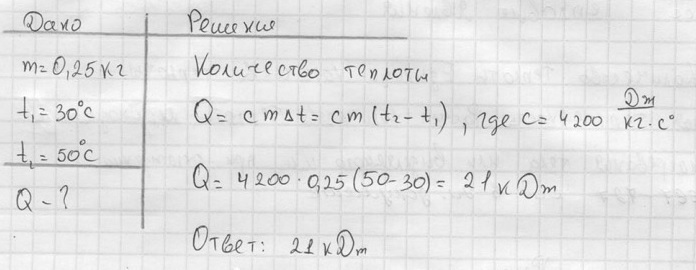 Дано
m=0,25 кг
t₁=30°c
t₂=50°c
Q - ?
Решение
Количество теплоты
Q = c m Δt = cm (t₂ - t₁), где c = 4200 Дж/кг·c°
Q = 4200 · 0,25 (50-30) = 21 кДж
Ответ: 21 кДж